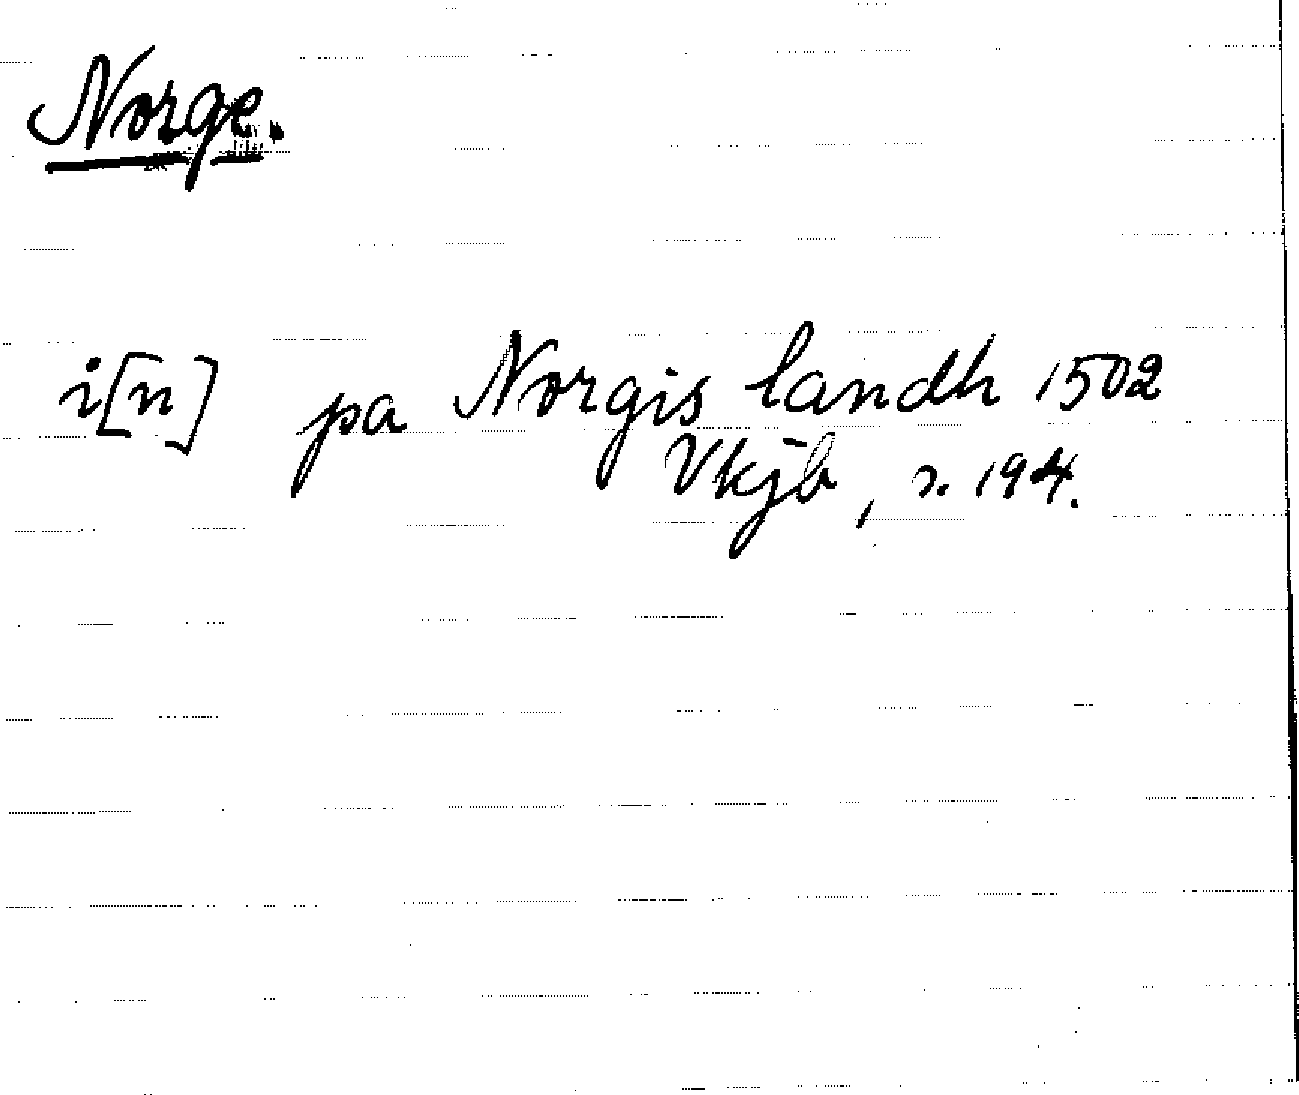 Norge.
i[n] pa Norgis landh 1502
Vkjb, s. 194.